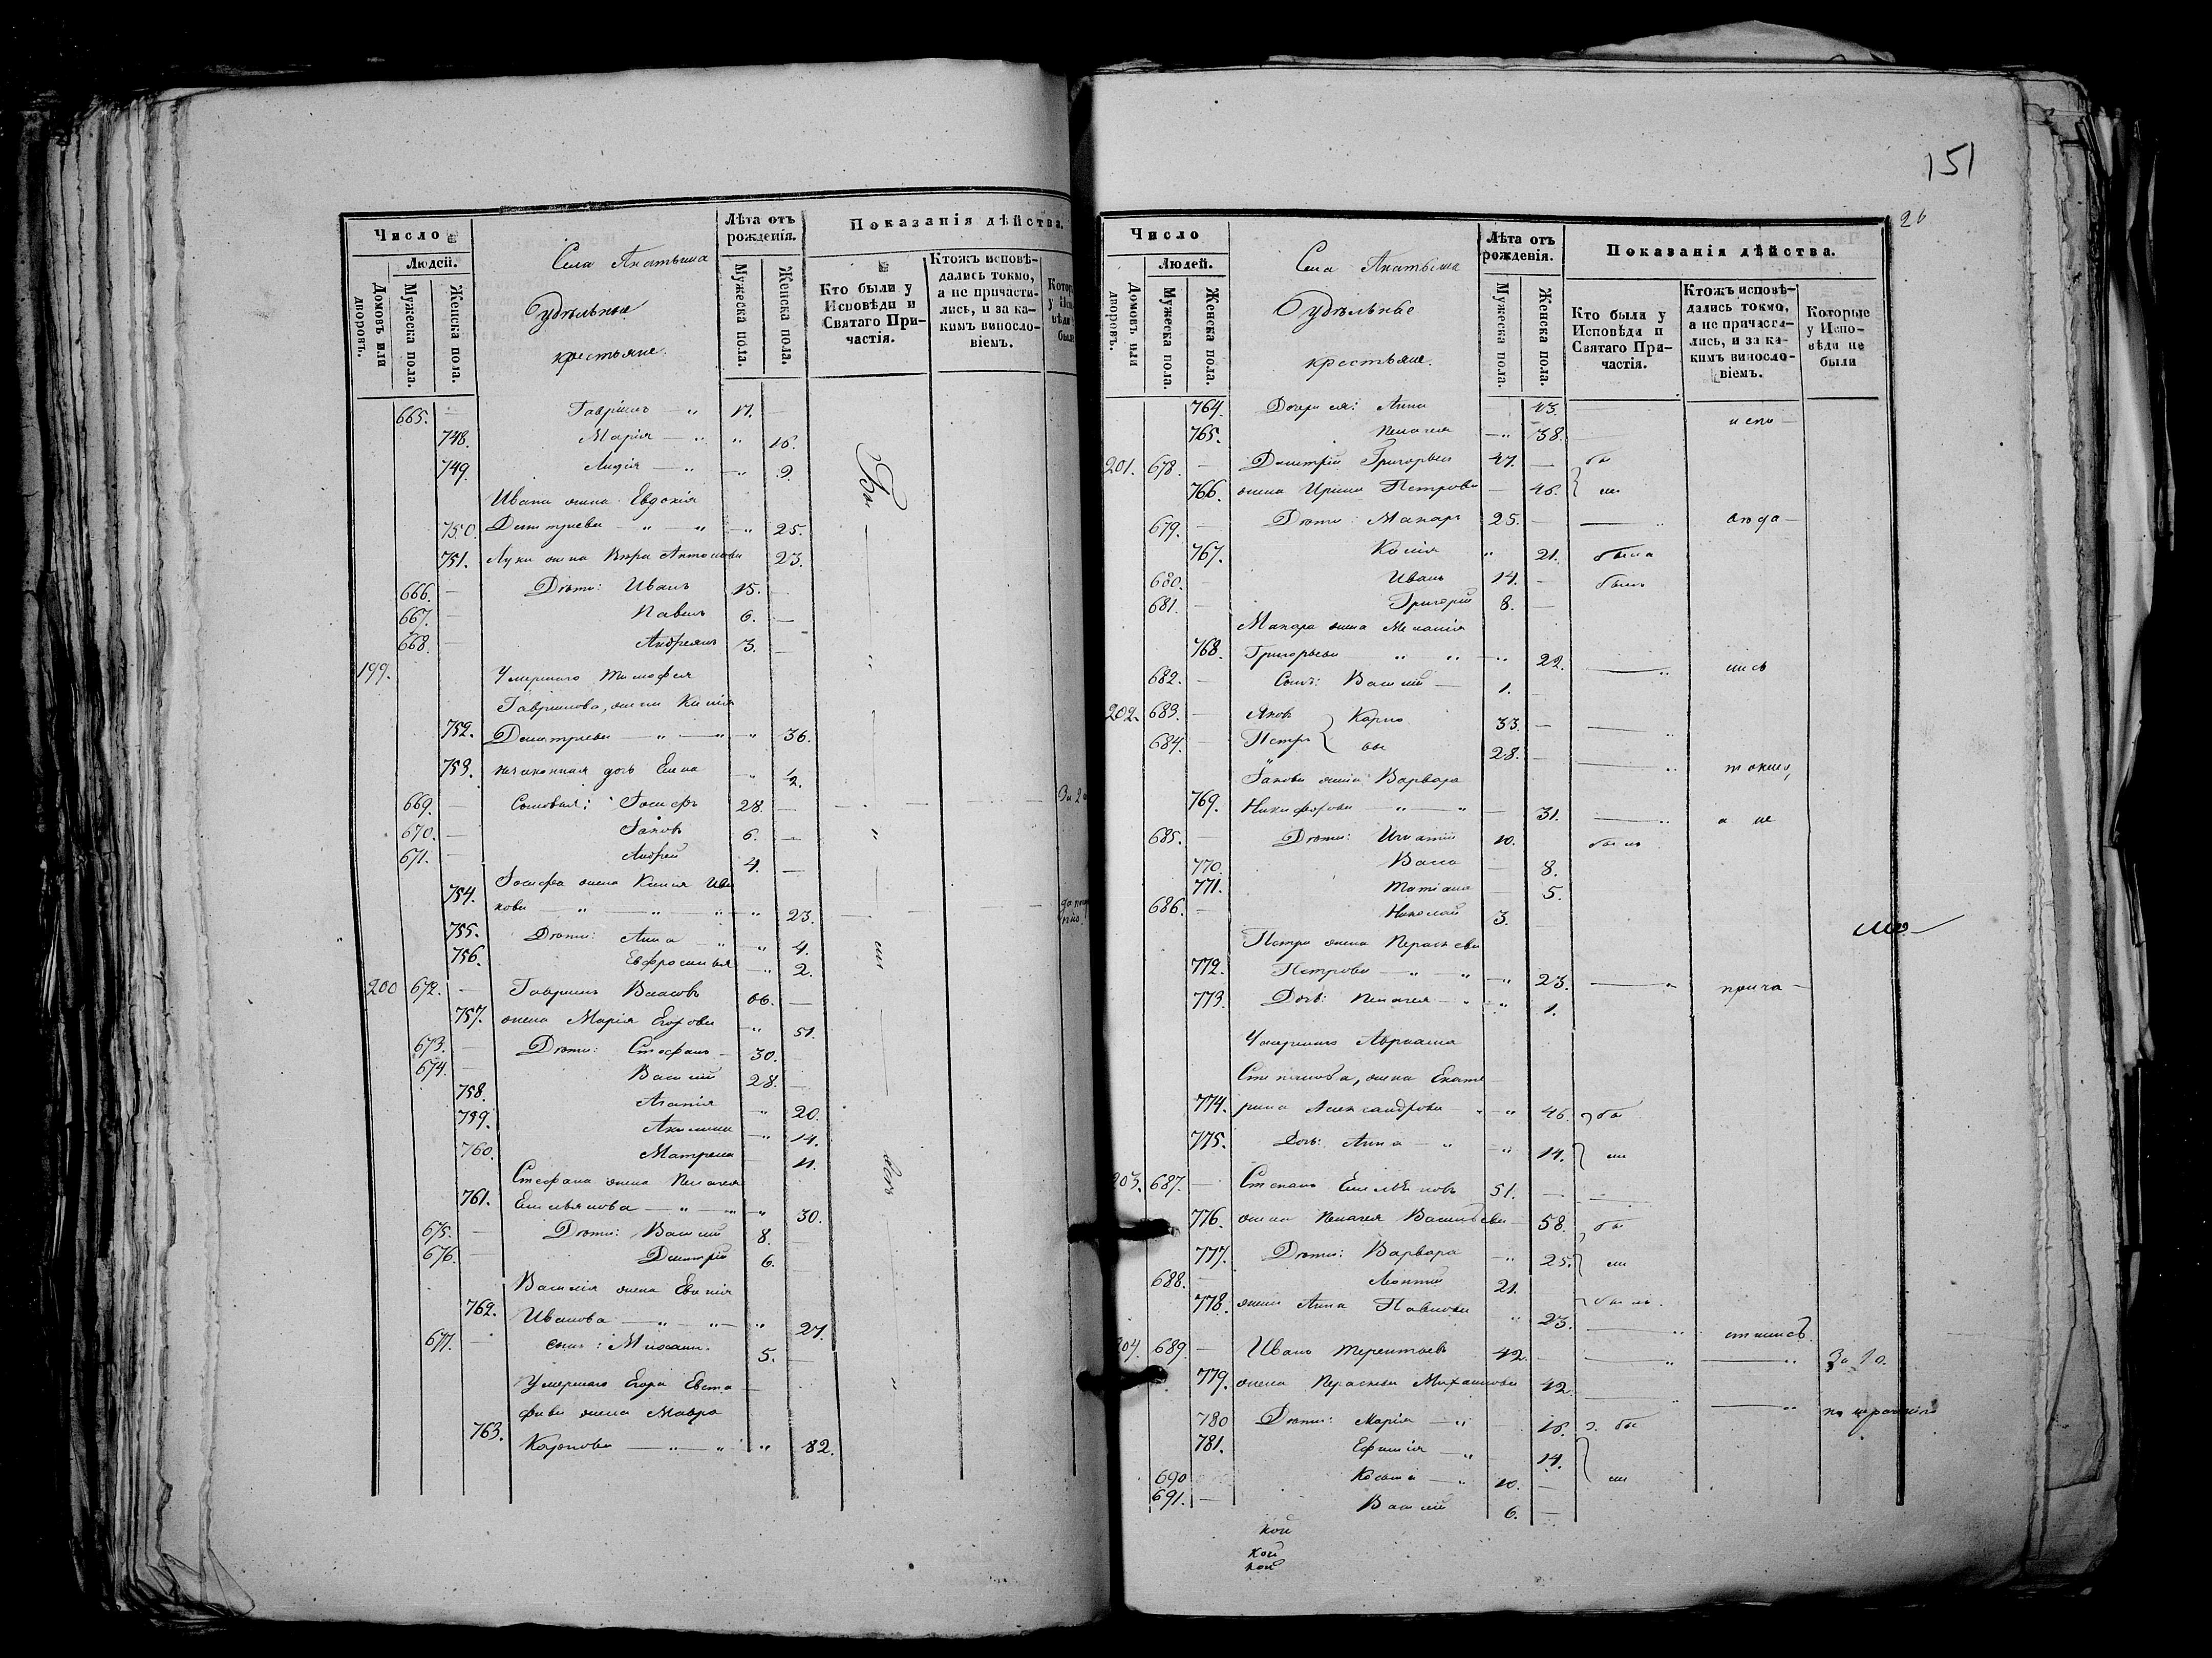 Число
Людей.
Домовъ или дворовъ.
Мужеска пола.
Женска пола.
Села
Удѣльные
крестьяне.
Лѣта отъ рожденія.
Мужеска пола.
Женска пола.
Показанія дѣйства.
Кто были у Исповѣди и Святаго Причастія.
Ктожъ исповѣдались токмо, а не причастились, и за какимъ винословіемъ.
665. — Гавріилъ — " 17. —
748. Марія — " " 15.
749. Лидія — " — " 9.
Ивана жена Евдокія
750. Дмитріева — " — " — " 25.
751. Луки жена Вѣра Антонова 23.
666. — Дѣти: Иванъ 15. —
667. — Павелъ 6. —
668. — Андреянъ 3. —
199. Умершаго Тимофея
Гаврилова, жена
752. Дмитріева — " — " — " 36.
753. незаконная дочь Елена — " 1/2.
669. — Сыновья: Іосифъ 28. —
670. — Іаковъ 6. —
671. — Андрей 4. —
Іосифа жена
754. кова — " — " — " — " 23.
755. Дѣти: Анна — " — " 4.
756. Евфросинья — " 2.
200 672. — Гавріилъ Власовъ 66. —
757. жена Марія Егорова — " 51.
673. — Дѣти: Стефанъ — 30. —
674. — Василій 28. —
758. Агапія " 20.
759. Акилина — " 14.
760. Матрена — 11.
Стефана жена Пелагея
761. Емельянова — " — " — " 30.
675. — Дѣти: Василій 8. —
676. — Дмитрій 6. —
Василія жена
762. Иванова — " — " — " 27.
677. — сынъ: Михаилъ. 5. —
Умершаго Егора Евста
фьева жена Мавра
763. Карпова — " — " " 82.
151
26
Число
Людей.
Домовъ или дворовъ.
Мужеска пола.
Женска пола.
Села
Удѣльные
крестьяне.
Лѣта отъ рожденія.
Мужеска пола.
Женска пола.
Показанія дѣйства.
Кто были у Исповѣди и Святаго Причастія.
Ктожъ исповѣдались токмо, а не причастились, и за какимъ винословіемъ.
Которые у Исповѣди не были
764. Дочери ея: Анна 43. — испо —
765. Пелагея — " 38. —
201. 678. — Димитрій Григорьевъ 47. — бы
766. жена Ирина Петрова — 46. ли
679. — Дѣти: Макаръ 25. — — " вѣда —
767. " 21. была
680. — Иванъ 14. — былъ
681. — Григорій 8. —
Макара жена Меланія
768. Григорьева " " — " 22. — " лись
682. — Сынъ: Василій — 1. —
202. 683. — Яковъ } Карпо 33. — — "
684. — Петръ } вы 28. — — " токмо,
Іакова жена Варвара
769. Никифорова — " — " — 31. — " а не
685. — Дѣти: Игнатій 10. былъ
770. — 8.
771. Татіана — 5.
686. — Николай 3.
Петра жена Параскева
772. Петрова — " — " — " 23. — " прича —
773. Дочь: Пелагея — " — " 1.
Умершаго
Степанова, жена Екате
774. рина Александрова — " — " 46. бы
775. Дочь: Анна — " — " 14. ли
203. 687. — Степанъ Емельяновъ 51. — —
776. жена Пелагея Васильева — 58. бы
777. Дѣти: Варвара — " 25. ли
688. — Леонтій 21. —
778. жена Анна Павлова " 23. — " стились.
204. 689. — Иванъ Терентьевъ 42. — — " — "
779. жена Параскева Михайлова 42. — " — "
780 Дѣти: Марія — " 16. бы
781. Ефимія — " 14.
690 Косьма — " 10. — ли
691. — Василій 6. —
кой
кой
кой